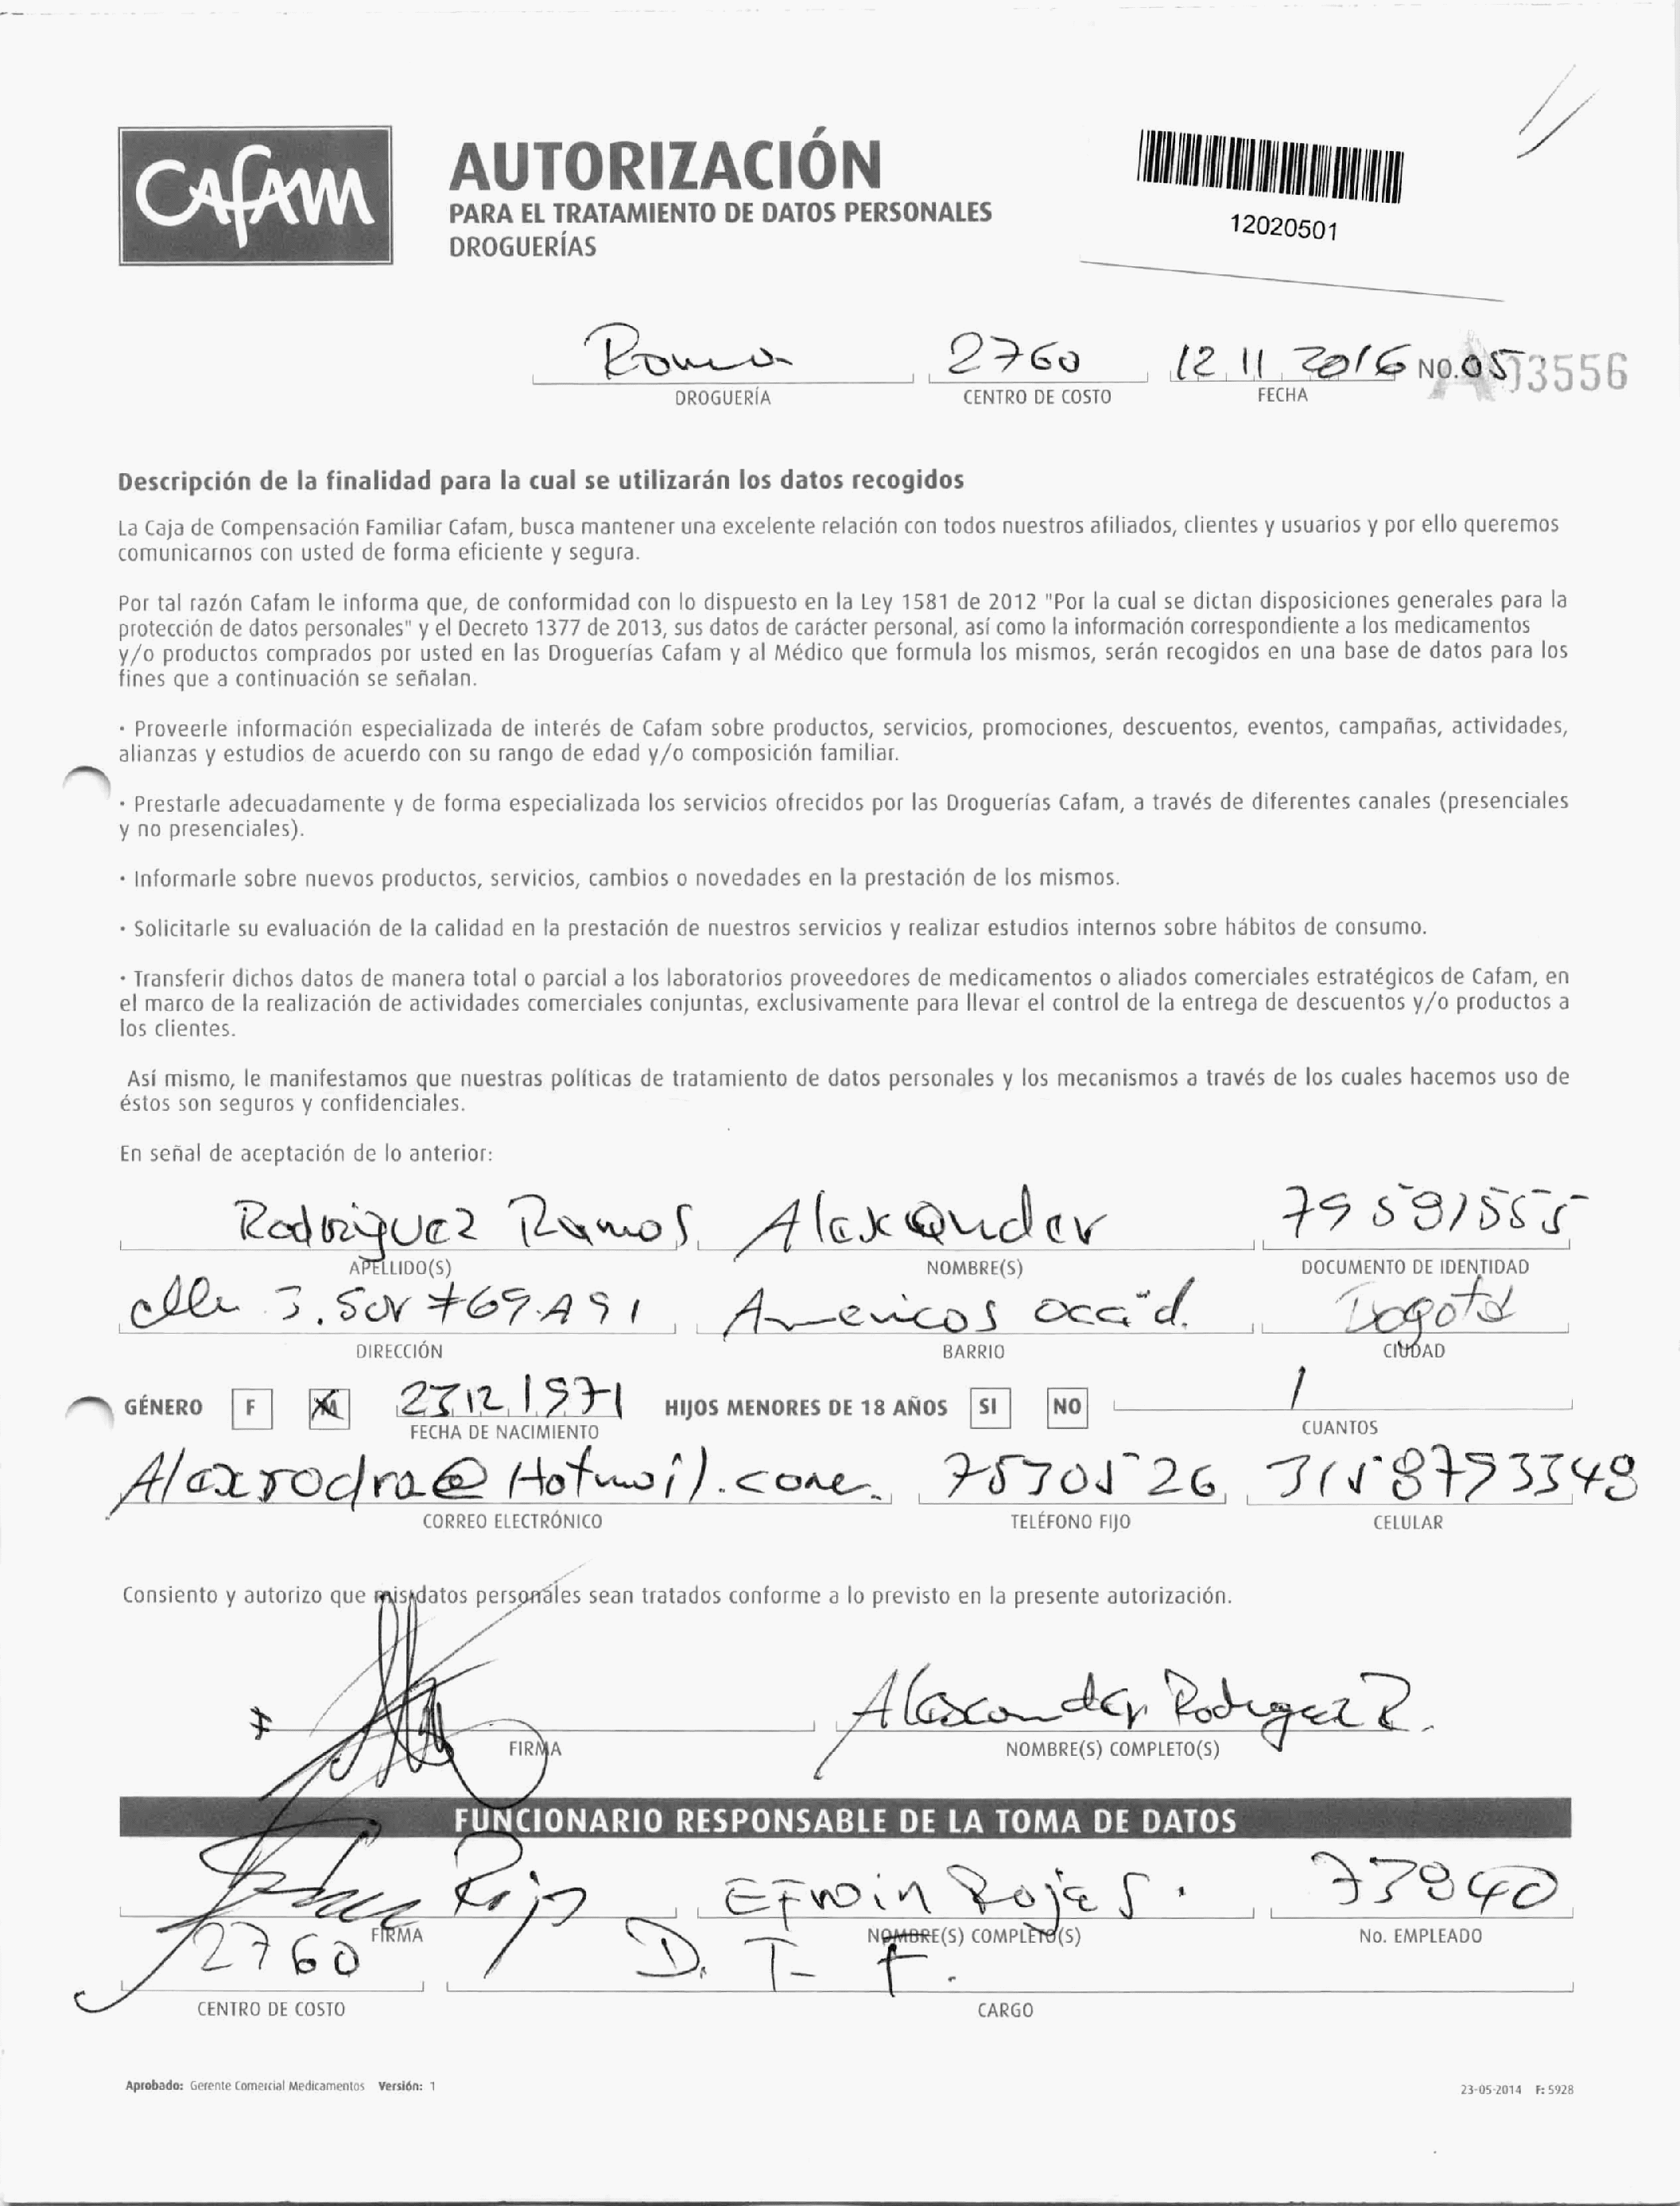 CAfAM
AUTORIZACIÓN
PARA EL TRATAMIENTO DE DATOS PERSONALES
DROGUERÍAS
12020501
Roma 2760 12 11 2016 NO.05 03556
DROGUERÍA CENTRO DE COSTO FECHA
Descripción de la finalidad para la cual se utilizarán los datos recogidos
La Caja de Compensación Familiar Cafam, busca mantener una excelente relación con todos nuestros afiliados, clientes y usuarios y por ello queremos
comunicarnos con usted de forma eficiente y segura.
Por tal razón Cafam le informa que, de conformidad con lo dispuesto en la Ley 1581 de 2012 "Por la cual se dictan disposiciones generales para la
protección de datos personales" y el Decreto 1377 de 2013, sus datos de carácter personal, así como la información correspondiente a los medicamentos
y/o productos comprados por usted en las Droguerías Cafam y al Médico que formula los mismos, serán recogidos en una base de datos para los
fines que a continuación se señalan.
· Proveerle información especializada de interés de Cafam sobre productos, servicios, promociones, descuentos, eventos, campañas, actividades,
alianzas y estudios de acuerdo con su rango de edad y/o composición familiar.
· Prestarle adecuadamente y de forma especializada los servicios ofrecidos por las Droguerías Cafam, a través de diferentes canales (presenciales
y no presenciales).
· Informarle sobre nuevos productos, servicios, cambios o novedades en la prestación de los mismos.
· Solicitarle su evaluación de la calidad en la prestación de nuestros servicios y realizar estudios internos sobre hábitos de consumo.
· Transferir dichos datos de manera total o parcial a los laboratorios proveedores de medicamentos o aliados comerciales estratégicos de Cafam, en
el marco de la realización de actividades comerciales conjuntas, exclusivamente para llevar el control de la entrega de descuentos y/o productos a
los clientes.
Así mismo, le manifestamos que nuestras políticas de tratamiento de datos personales y los mecanismos a través de los cuales hacemos uso de
éstos son seguros y confidenciales.
En señal de aceptación de lo anterior:
Rodriguez Ramos Alexander 79591555
APELLIDO(S) NOMBRE(S) DOCUMENTO DE IDENTIDAD
clle 3. Sur #69A91 Americas occid. Bogotá
DIRECCIÓN BARRIO CIUDAD
GÉNERO F M 23 12 1971 HIJOS MENORES DE 18 AÑOS SI NO 1
FECHA DE NACIMIENTO CUANTOS
Alexrodra@Hotmail.com. 7570526 3158793349
CORREO ELECTRÓNICO TELÉFONO FIJO CELULAR
Consiento y autorizo que mis datos personales sean tratados conforme a lo previsto en la presente autorización.
Alexander Rodriguez R.
FIRMA NOMBRE(S) COMPLETO(S)
FUNCIONARIO RESPONSABLE DE LA TOMA DE DATOS
Rojas Erwin Rojas. 73840
FIRMA NOMBRE(S) COMPLETO(S) No. EMPLEADO
2760 D. T- F.
CENTRO DE COSTO CARGO
Aprobado: Gerente Comercial Medicamentos Versión: 1
23-05-2014 F: 5928